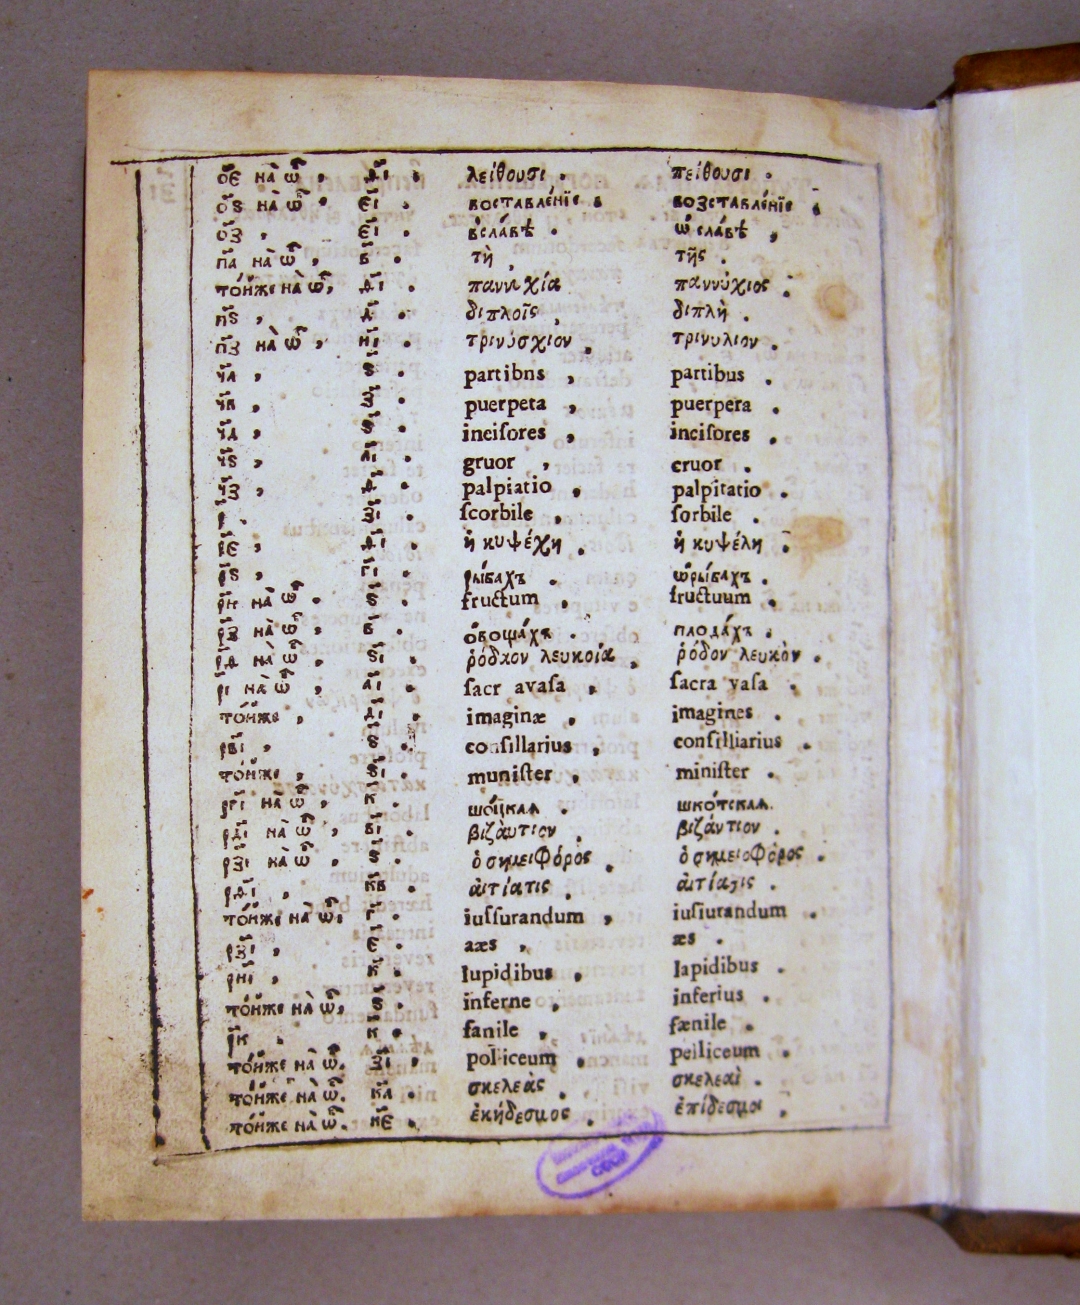 о҃е на̀ ѿ , д҃і . λείθουσι . πείθουσι .
о҃ѕ на̀ ѿ . є҃і . воставле́нїе . возставле́нїе .
о҃з , є҃і . всла́вѣ . ѡ сла́вѣ ,
п҃а на̀ ѿ , в҃ . τὴ , τῆς .
то́йже на̀ ѿ, д҃і . παννιχία παννύχιος .
п҃ѕ , д҃ . διπλοῖς , διπλὴ .
п҃з на̀ ѿ , и҃і . τρινύσχιον , τρινυλιον .
ч҃а , ѕ҃ . partibns , partibus .
ч҃в , з҃ . puerpeta , puerpera .
ч҃д , ѕ҃ . inciſores , inciſores ,
ч҃ѕ , а҃і . gruor , cruor .
ч҃з , д҃ . palpiatio , palpitatio .
р҃ . з҃і . ſcorbile , ſorbile .
р҃е , д҃і . ἡ κυψέχη . ἡ κυψέλη .
р҃ѕ , г҃і . ры́бахъ . ѡры́бахъ .
р҃и на̀ ѿ . ѕ҃ . fructum , fructuum .
р҃з на̀ ѿ . в҃ . ѻ́вощахъ . плода́хъ .
р҃д на̀ ѿ , ѕ҃і . ῥόδχον λευκοία , ῥόδον λευκὸν .
р҃і на̀ ѿ , а҃і . ſacr avaſa , ſacra vaſa .
то́йже , д҃і . imaginæ , imagines .
рв҃і , ѕ҃ . conſillarius , conſilliarius .
то́йже , ѕ҃і . muniſter , miniſter .
рг҃і на̀ ѿ , к҃ . шо́цкаѧ . шко́тскаѧ.
рд҃і на̀ ѿ , в҃і . βιζὰυτιον . βιζάντιον .
рз҃і на̀ ѿ . ѕ҃ . ὁ σημειφόρος . ὁ σημειοφόρος .
рд҃і , к҃в . ἀιτίατις . .
то́йже на̀ ѿ. г҃ . iuſſurandum , iuſiurandum .
рз҃і , є҃ . aæs , æs .
ри҃і , к҃ . lupidibus . lapidibus .
то́йже на̀ ѿ, ѕ҃ . inferne , inferius .
рк҃ . к҃ . fanile , fænile .
то́йже на̀ ѿ. з҃і . pol iceum . pelliceum .
то́йже на̀ ѿ. к҃а . σκελεὰς . σκελεαὶ .
то́йже на̀ ѿ. к҃є . ἐκήδεσμος . ἐπίδεσμοι .